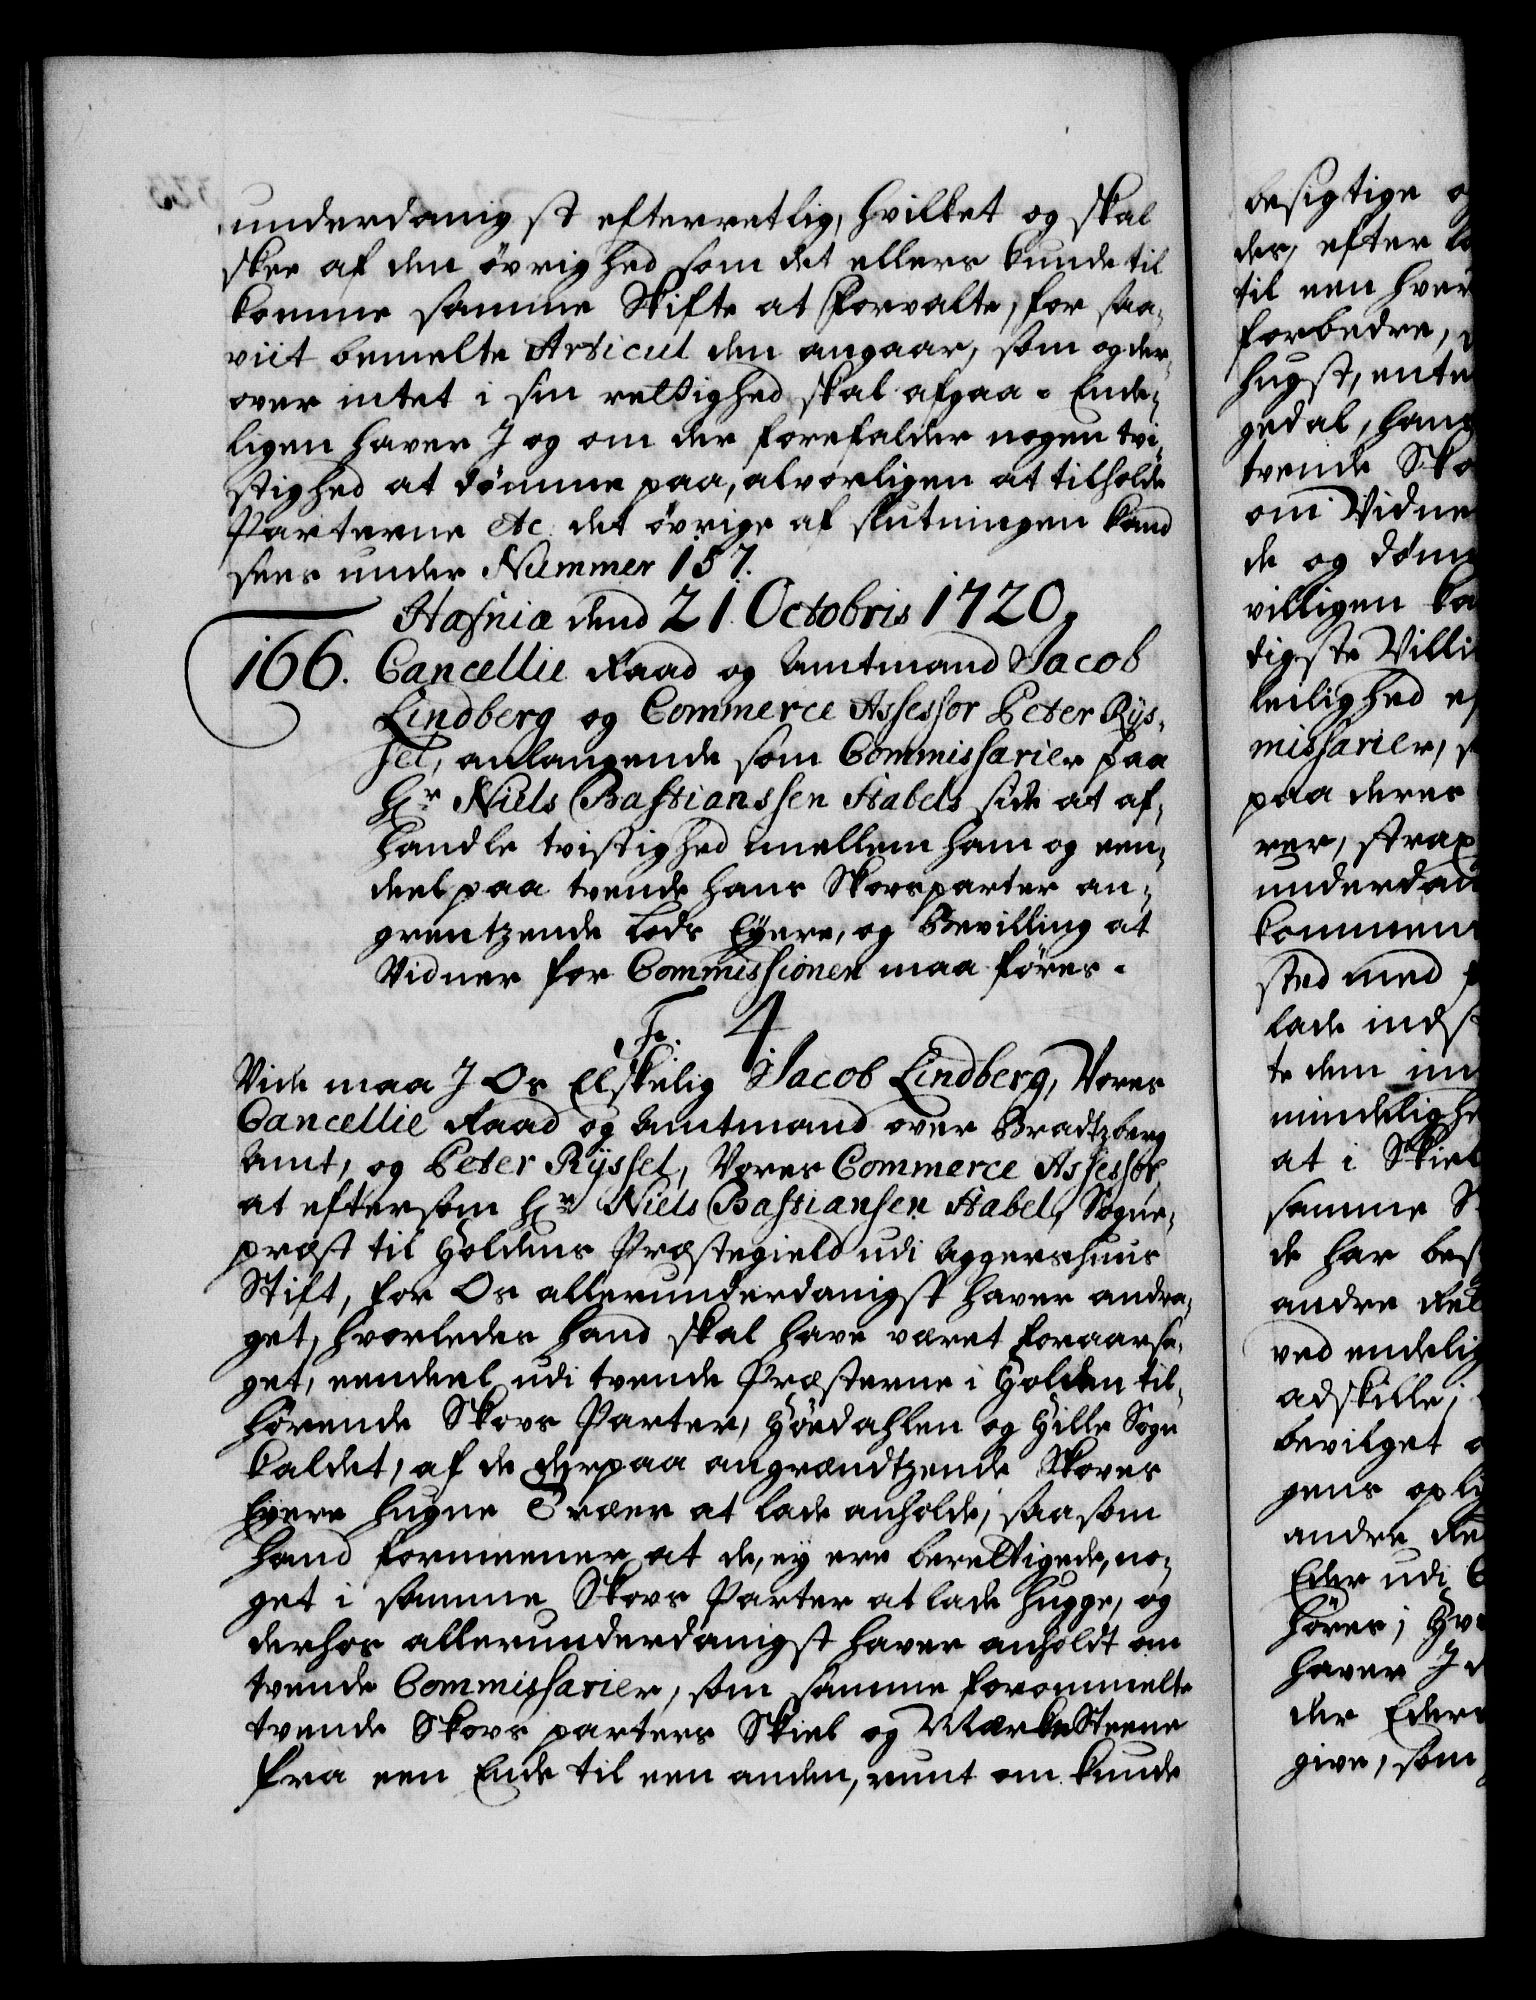 underdanigst efterretlig, hvilket og skal
skee af den øvrighed som det ellers kunde til
komme samme Skifte at forvalte, for saa,
viit bemelte Articul den angaar, som og der,
over intet i sin rettighed skal afgaa. Ende,
ligen haver I og om der forefalder nogen tvi,
stighed at dømme paa, alvorligen at tilholde
Parterne etc. det øvrige af slutningen kand
sees under Nummer 157.
Hafniæ dend 21. Octobris 1720.
166. Cancellie Raad og Amtmand Jacob
Lindberg og Commerce Assessor Peter Rys,
sel, anlangende som Commissarier paa
Hr Niels Bastianssen Stabels side at af,
handle tvistighed mellem ham og een,
deel paa tvende hans Skovsparter an,
grentzende Lods Eyere, og Bevilling at
Vidner for Commissionen maa føres.
F. 4
Vide maa I Os Elskelig Jacob Lindberg, Vores
Cancellie Raad og Amtmand over Bradtzberg
Amt, og Peter Ryssel, Vores Commerce Assessor,
at eftersom Hr Niels Bastiansen Stabel, Sogne,
præst til Holdens Præstegield udi Aggershuus
Stift, for Os allerunderdanigst haver andra,
get, hvorledes hand skal have været foraarsa,
get, eendeel udi tvende Præsterne i Holden til,
hørende Skovs Parter, Høedahlen og Hille Sogn
kaldet, af de derpaa angrændtzende Skoves
Eyere hugne Træer at lade anholde, saasom
hand formeener at de, ey ere berettigede, no,
get i samme Skovs Parter at lade hugge, og
derhos allerunderdanigst haver anholdt om
tvende Commissarier, som samme forommelte
tvende Skovs parters Skiel og MærkeSteene
fra een Ende til een anden, runt om kunde
besigtige
der, efter
til een hver
forbedre,
hugst,
gedal,
tvende
om Vidne
de og
villigen
digste
leilighed
missarier,
paa deres
rer, strax
underdan
kommen
sted med
lade
te dem
mindeligh
at i Skiel
samme
de har
andre
ved endelig
adskille;
bevilget
gens
andre
Eder udi
høres;
haver I
der Eders
give, som